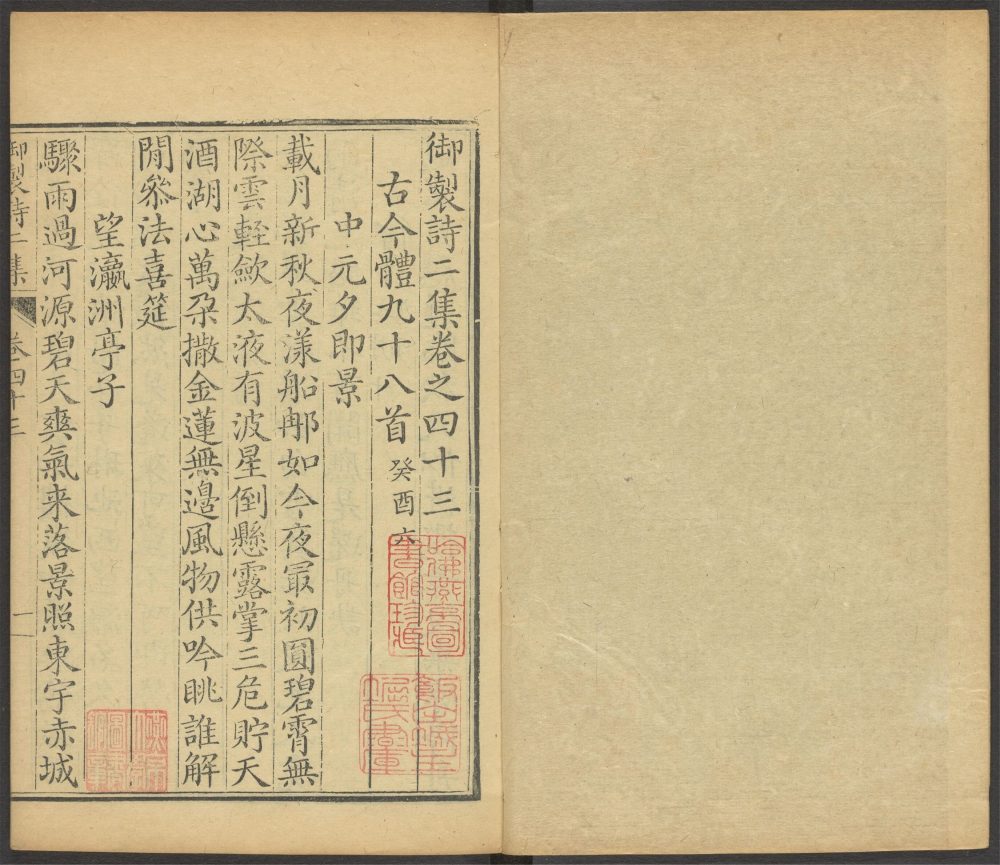 御製詩二集卷之四十三
古今體九十八首 癸酉六
中元夕即景
載月新秋夜漾船那如今夜最初圓碧霄無
際雲輕歛太液有波星倒懸露掌三危貯天
酒湖心萬朶撒金蓮無邊風物供吟眺誰解
閒叅法喜筵
望瀛洲亭子
驟雨過河源碧天爽氣来落景照東宇赤城
御製詩二集 卷四十三 一
哈佛燕京圖
書館珍藏